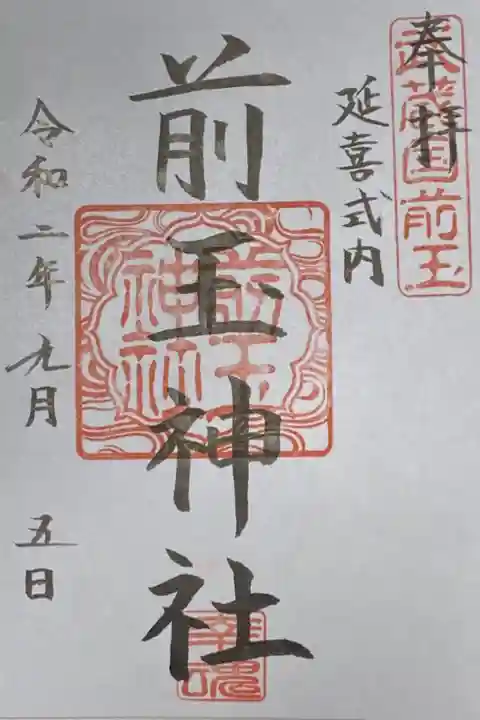 奉拝
武蔵国前玉
延喜式内
前玉神社
前玉
神社
幸魂
令和二年九月 五日